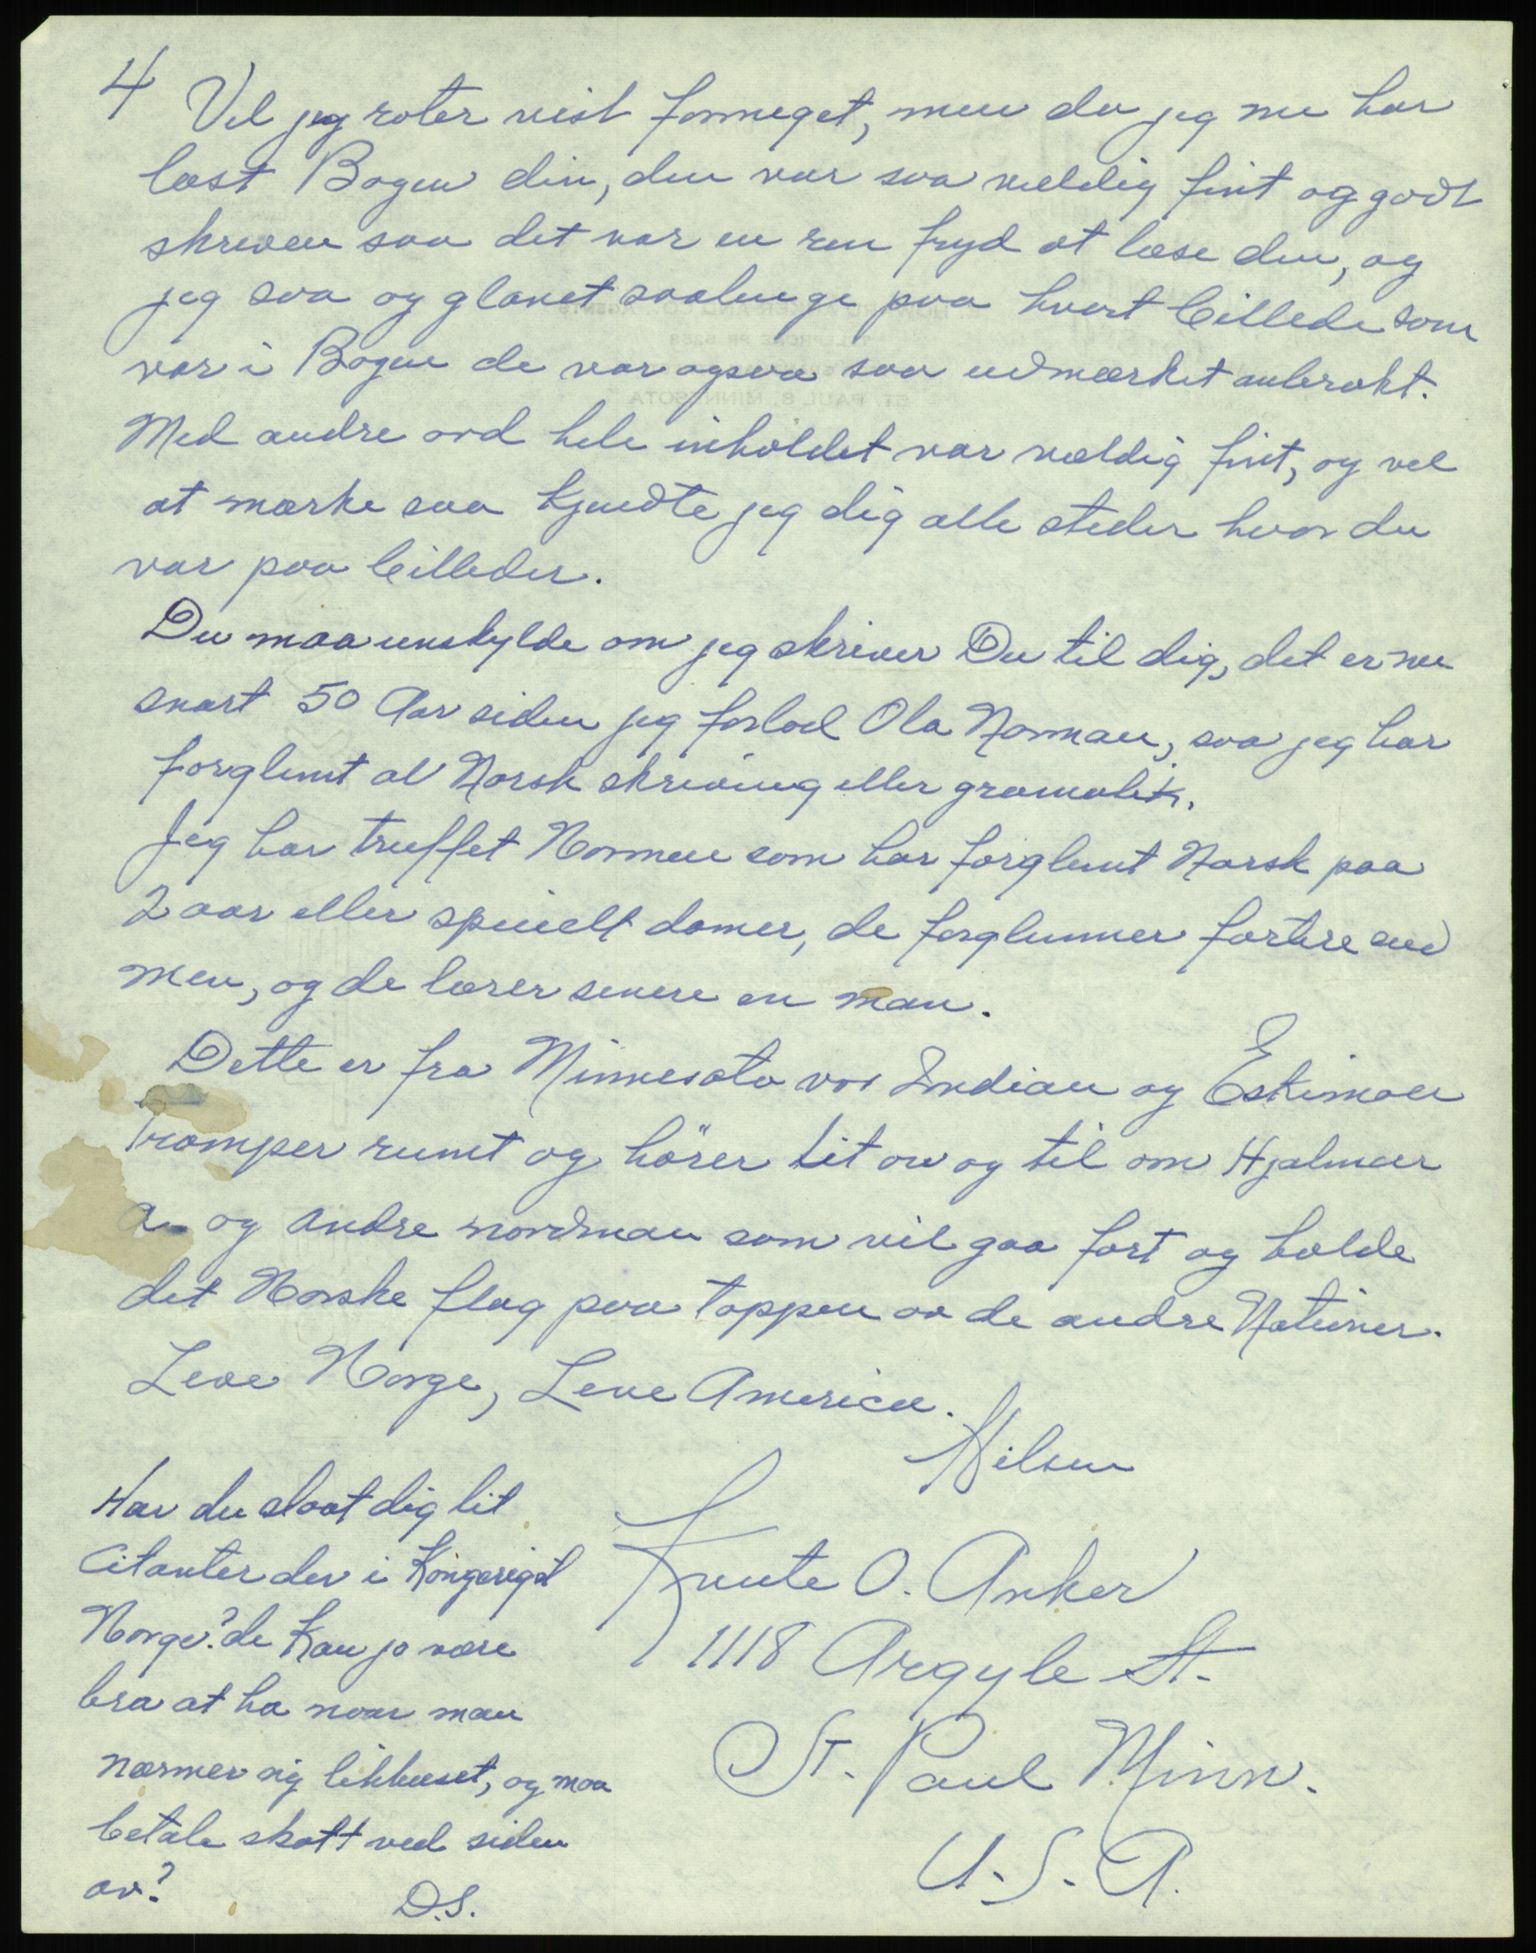 4
Vel jeg roter vist formeget, men du jeg nu har
læst Bogen din, den var saa veldig fint og godt
skreven saa det var en ren fryd at læse den, og
jeg saa og glanet saalenge paa hvert billede som
var i Bogen de var ogsaa saa udmærket anbrakt.
Med andre ord hele inholdet var vældig fint, og vel
at mærke saa kjendte jeg dig alle steder hvor du
var paa billeder.
Du maa unskylde om jeg skriver Du til dig, det er nu
snart 50 Aar siden jeg forlod Ola Norman, saa jeg har
forglemt al Norsk skriving eller gramatik.
Jeg har truffet Normen som har forglemt Norsk paa
2 aar eller speielt damer, de forglemmer fortere end
men, og de lærer senere en man.
Dette er fra Minnesota vor Indian og Eskimoer
Tramper rumt og hörer lit av og til om Hjalmar
og andre nordman som vil gaa fort og holde
det Norske flag paa toppen av de andre Nationer.
Leve Norge, Leve America.
Hilsen
Knute O. Anker
1118 Argyle St.
St. Paul Minn.
U.S.A.
Har du slaat dig lit
Citanter der i Kongeriget
Norge? de Kan jo være
bra at ha naar man
nærmer sig likhuset, og maa
betale skatt ved siden
av?
D.S.